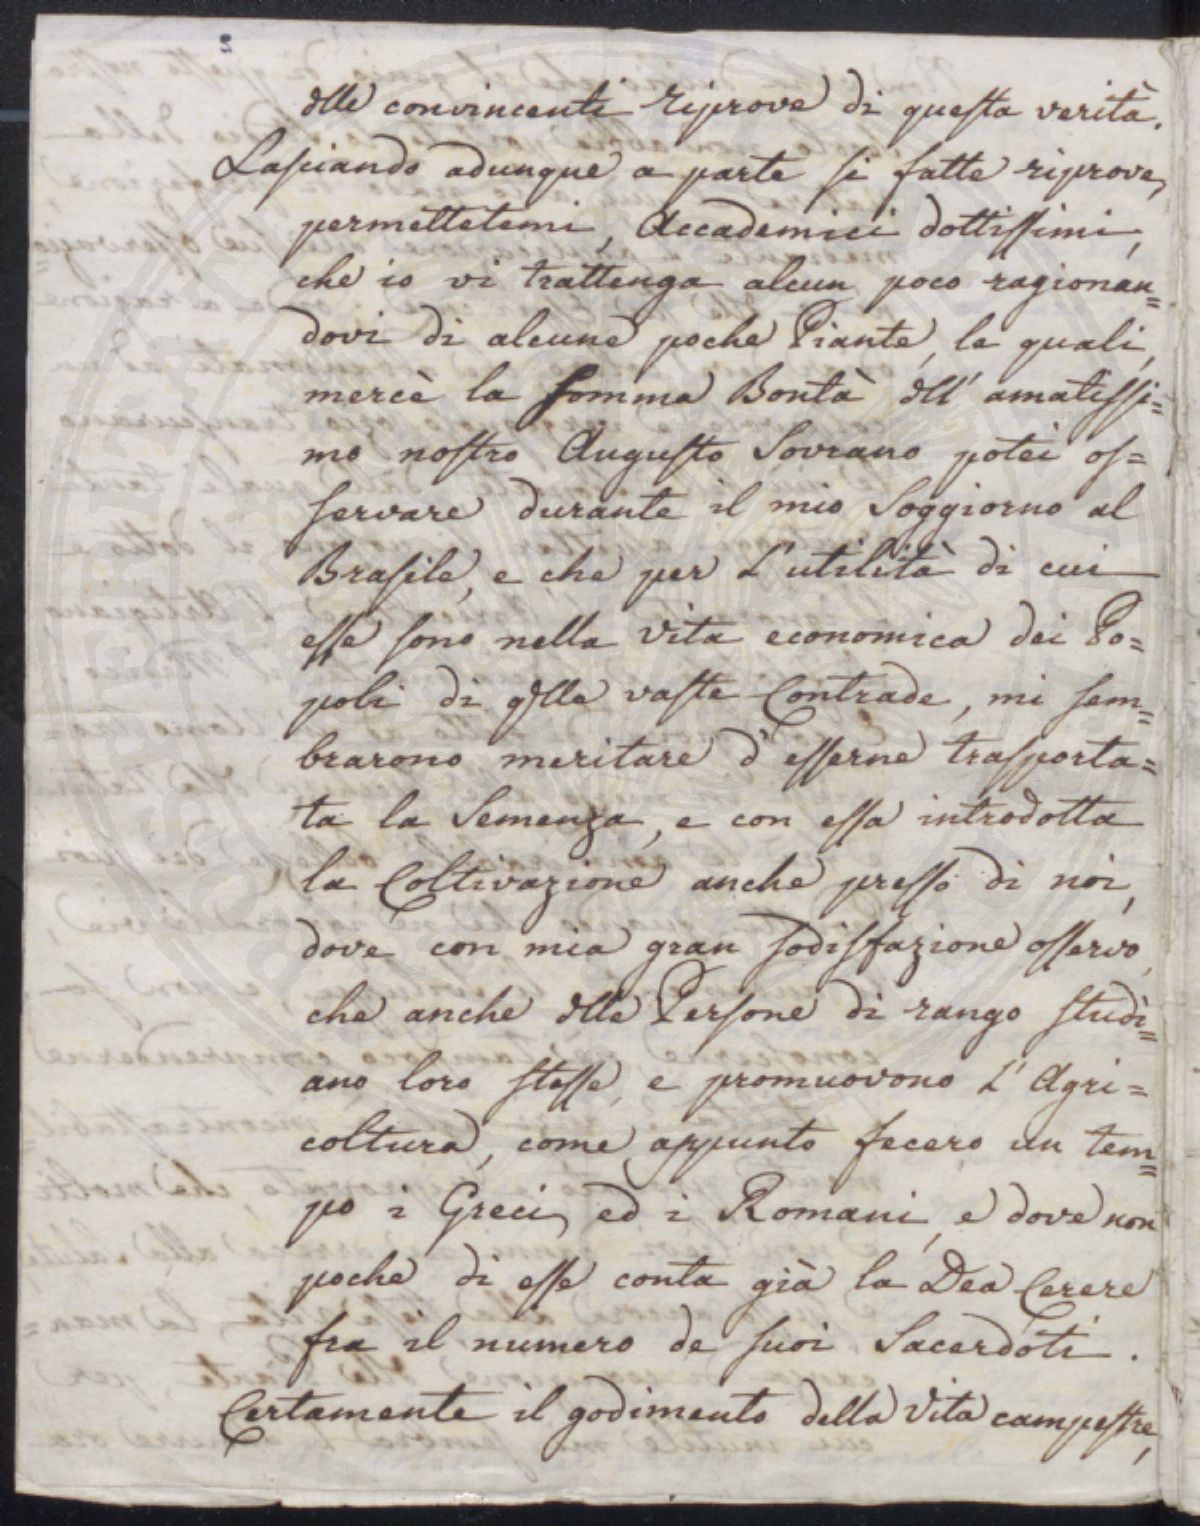 2
dlle convincenti riprove di questa verità.
Lasciando adunque a parte si fatte riprove,
permettetemi, Accademici dottissimi,
che io vi trattenga alcun poco ragionan=
dovi di alcune poche Piante, le quali,
mercè la somma Bontà dll' amatissi=
mo nostro Augusto Sovrano potei os=
servare durante il mio Soggiorno al
Brasile, e che per l'utilità di cui
esse sono nella vita economica dei Po=
poli di qlle vaste Contrade, mi sem=
brarono meritare d'esserne trasporta=
ta la Semenza, e con essa introdotta
la Coltivazione anche presso di noi,
dove con mia gran sodisfazione osservo,
che anche dlle Persone di rango studi=
ano loro stesse, e promuovono l'Agri=
coltura, come appunto fecero un tem=
po i Greci, ed i Romani, e dove non
poche di esse conta già la Dea Cerere
fra il numero de suoi Sacerdoti.
Certamente il godimento della Vita campestre,